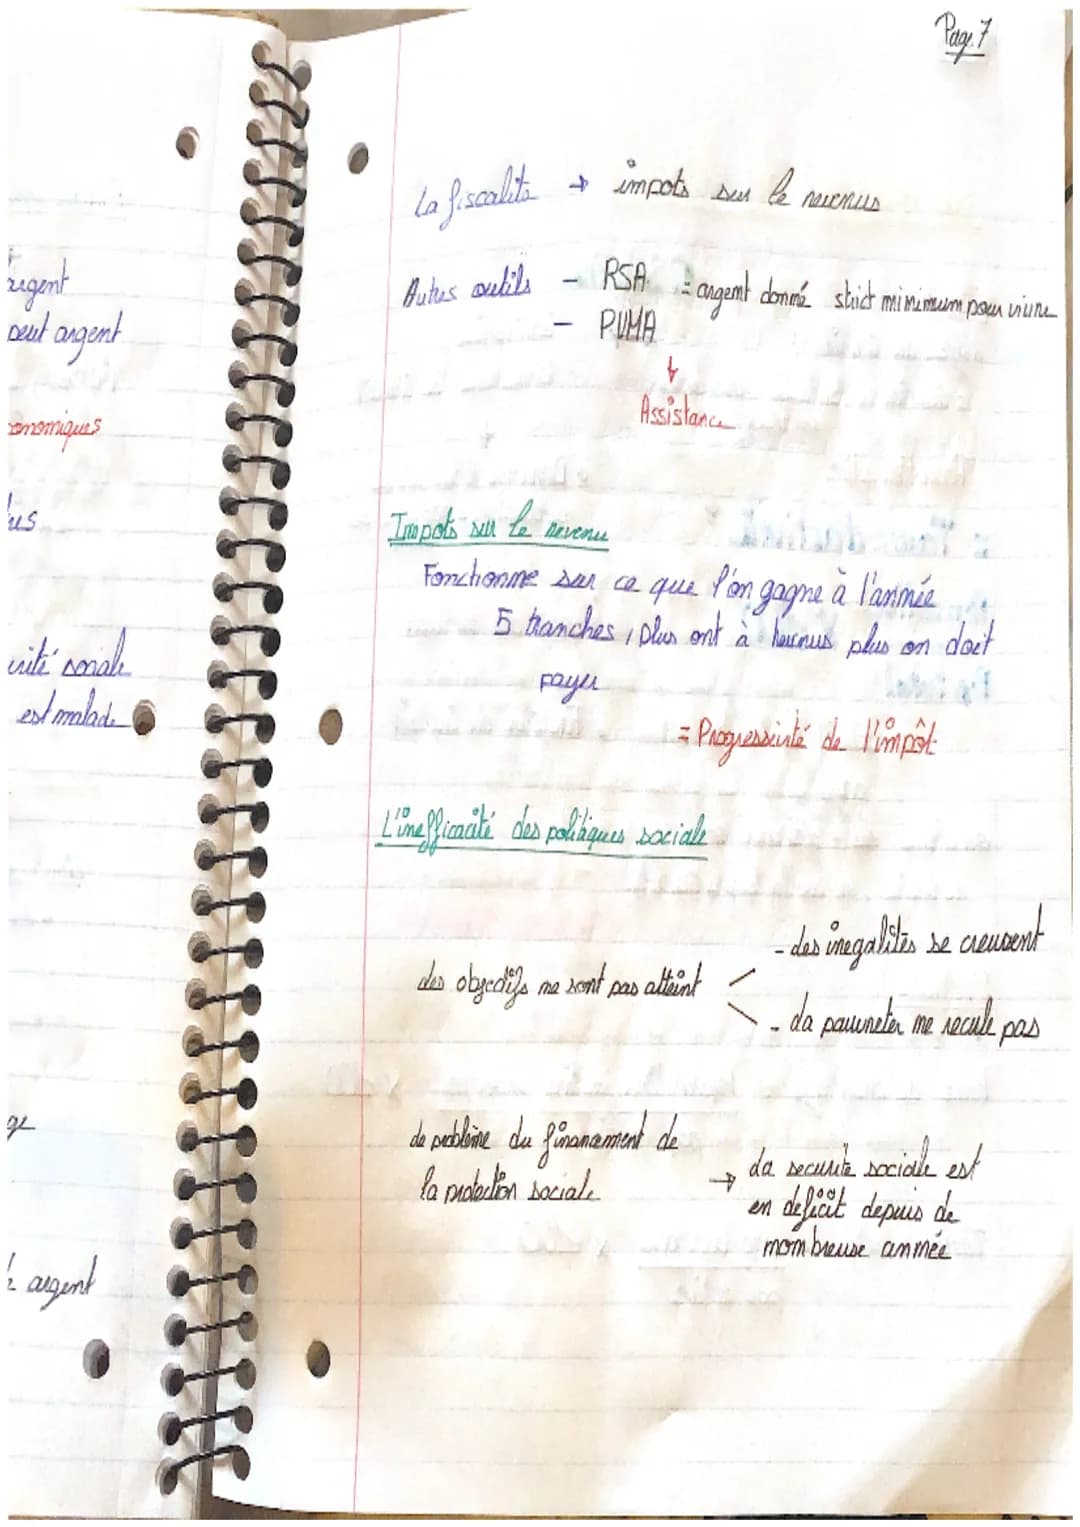 Page 7
La fiscalité → impots sur le revenus
Autres outils - RSA = argent donné strict minimum pour vivre
- PUMA
↓
Assistance
Impots sur le revenu
Fonctionne sur ce que l'on gagne à l'année
5 tranches, plus ont à revenus plus on doit
payer
= Progressivité de l'impôt
L'inefficacité des politiques sociale
Les objectifs ne sont pas atteint
- Les inegalités se creusent
- La pauvreter ne recule pas
Le problème du financement de
la protection sociale
→ La securité sociale est
en deficit depuis de
nombreuse année
argent
peut argent
onomiques
us
urité sociale
est malade
ge
argent